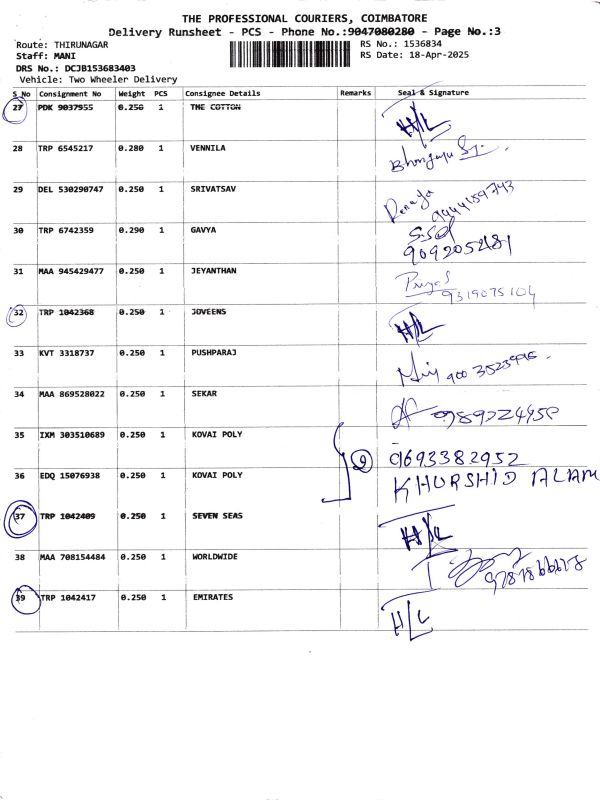 THE PROFESSIONAL COURIERS, COIMBATORE
Delivery Runsheet - PCS - Phone No.:9047080280 - Page No.:3
Route: THIRUNAGAR RS No.: 1536834
Staff: MANI RS Date: 18-Apr-2025
DRS No.: DCJB153683403
Vehicle: Two Wheeler Delivery
S No Consignment No Weight PCS Consignee Details Remarks Seal & Signature
27 PDK 9037955 0.250 1 THE COTTON H/L
28 TRP 6545217 0.280 1 VENNILA
29 DEL 530290747 0.250 1 SRIVATSAV 9444159743
30 TRP 6742359 0.290 1 GAVYA
9092052181
31 MAA 945429477 0.250 1 JEYANTHAN
9319075104
32 TRP 1042368 0.250 1 JOVEENS H/L
33 KVT 3318737 0.250 1 PUSHPARAJ
34 MAA 869528022 0.250 1 SEKAR
35 IXM 303510689 0.250 1 KOVAI POLY 9693382952
2
36 EDQ 15076938 0.250 1 KOVAI POLY KHURSHID ALAM
37 TRP 1042409 0.250 1 SEVEN SEAS H/L
38 MAA 708154484 0.250 1 WORLDWIDE
39 TRP 1042417 0.250 1 EMIRATES H/L